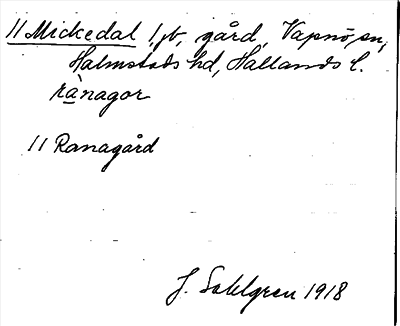 11 Mickedal 1, jb, gård, Vapnö sn,
Halmstads hd, Hallands l.
rànagor
11 Ranagård
J. Sahlgren 1918